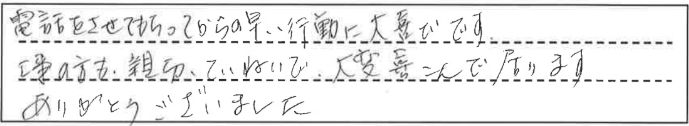 電話をさせてもらってからの早い行動に大喜びです。
の方も、親切、ていねいで、大変喜こんで居ります
ありがとうございました